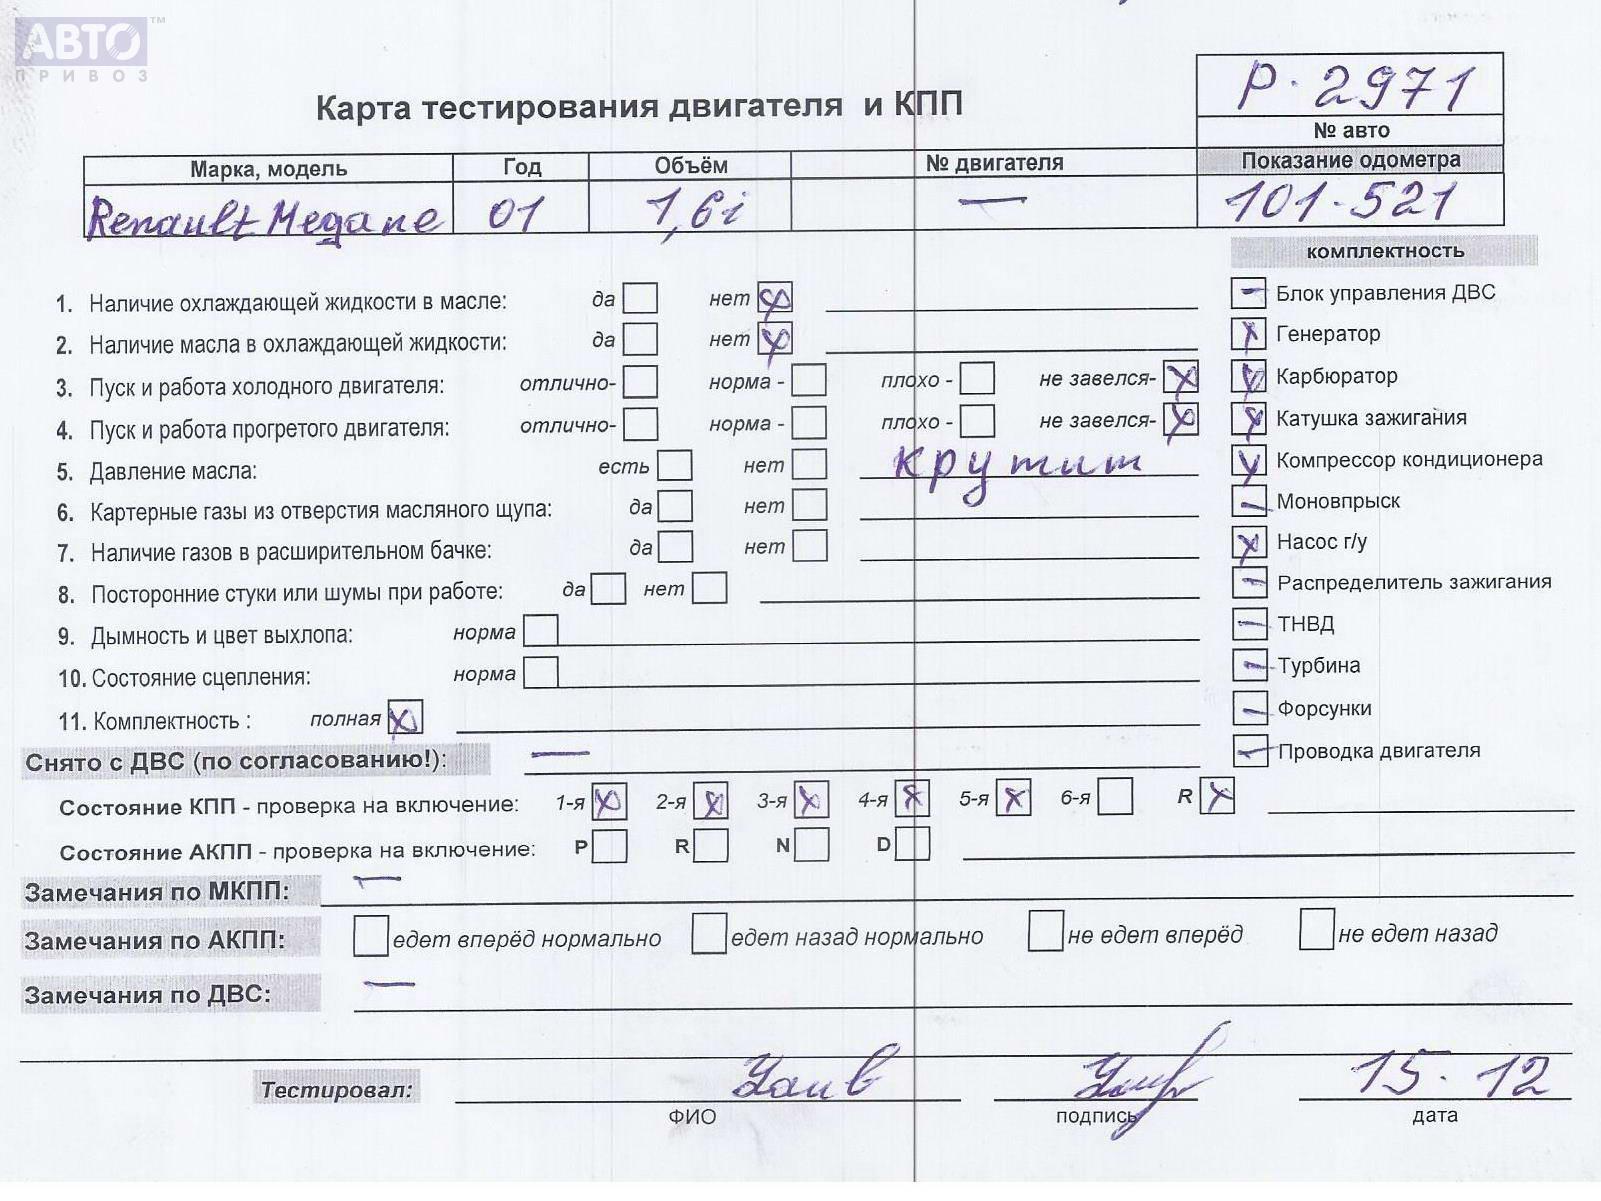 АВТО™
ПРИВОЗ
Р. 2971
Карта тестирования двигателя и КПП
№ авто
Марка, модель Год Объём № двигателя Показание одометра
Renault Megane 01 1,6i — 101-521
комплектность
1. Наличие охлаждающей жидкости в масле: да нет
Блок управления ДВС
2. Наличие масла в охлаждающей жидкости: да нет
Генератор
3. Пуск и работа холодного двигателя: отлично- норма - плохо - не завелся-
Карбюратор
4. Пуск и работа прогретого двигателя: отлично- норма - плохо - не завелся-
Катушка зажигания
5. Давление масла: есть нет крутит
Компрессор кондиционера
6. Картерные газы из отверстия масляного щупа: да нет
Моновпрыск
7. Наличие газов в расширительном бачке: да нет
Насос г/у
8. Посторонние стуки или шумы при работе: да нет
Распределитель зажигания
9. Дымность и цвет выхлопа: норма
ТНВД
10. Состояние сцепления: норма
Турбина
11. Комплектность : полная
Форсунки
Снято с ДВС (по согласованию!): —
Проводка двигателя
Состояние КПП - проверка на включение: 1-я 2-я 3-я 4-я 5-я 6-я R
Состояние АКПП - проверка на включение: P R N D
Замечания по МКПП: —
Замечания по АКПП: едет вперёд нормально едет назад нормально не едет вперёд не едет назад
Замечания по ДВС: —
Тестировал: 15.12
ФИО подпись дата